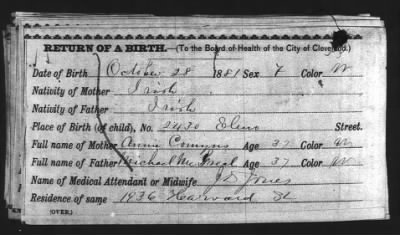 RETURN OF A BIRTH. (To the Board of Health of the City of Cleveland.)
Date of Birth October 28 1881 Sex F Color W
Nativity of Mother Irish
Nativity of Father Irish
Place of Birth (of child), No. 2430 Street.
Full name of Mother Annie Age 37 Color W
Full name of Father Michael Age 37 Color W
Name of Medical Attendant or Midwife J S Jones
Residence of same 1936 St
(OVER.)